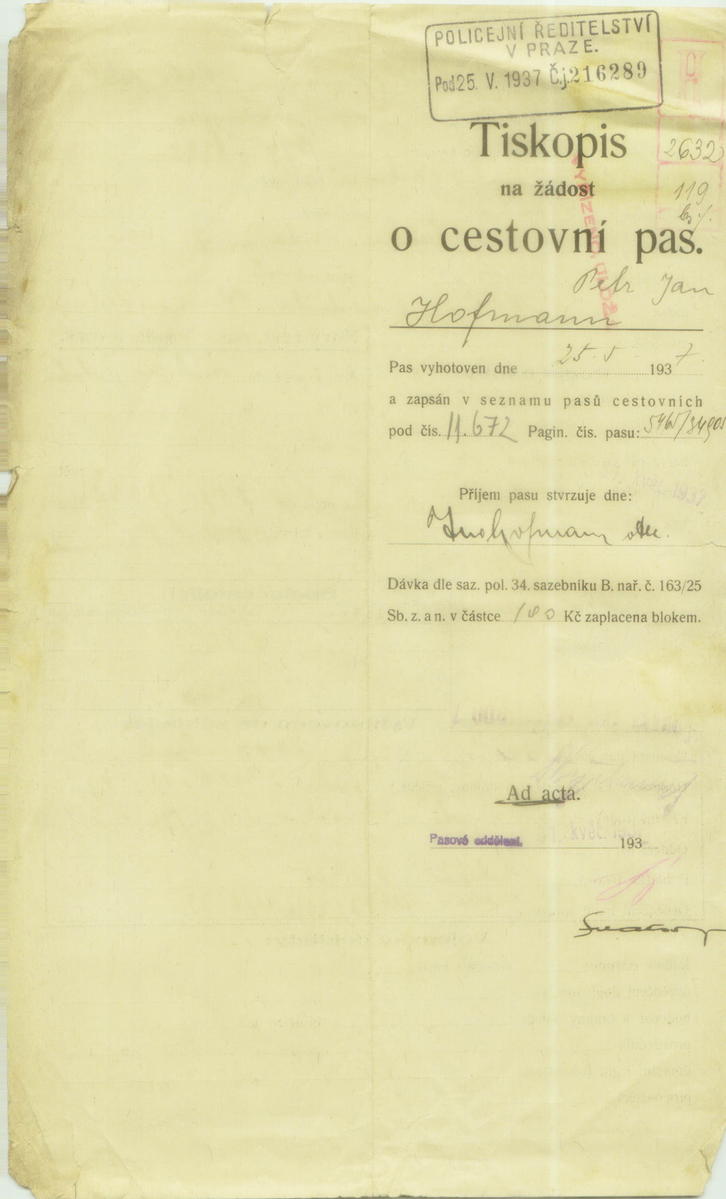 POLICEJNÍ ŘEDITELSTVÍ
V PRAZE.
Pod 25. V. 1937 Č.j. 216289
Tiskopis
2632
na žádost
119
o cestovní pas.
Petr Jan
Hofmann
Pas vyhotoven dne 25. 5. 1937
a zapsán v seznamu pasů cestovních
pod čís. 11.672 Pagin. čís. pasu:
Příjem pasu stvrzuje dne:
otec
Dávka dle saz. pol. 34. sazebníku B. nař. č. 163/25
Sb. z. a n. v částce Kč zaplacena blokem.
Ad acta.
Pasové oddělení. 193